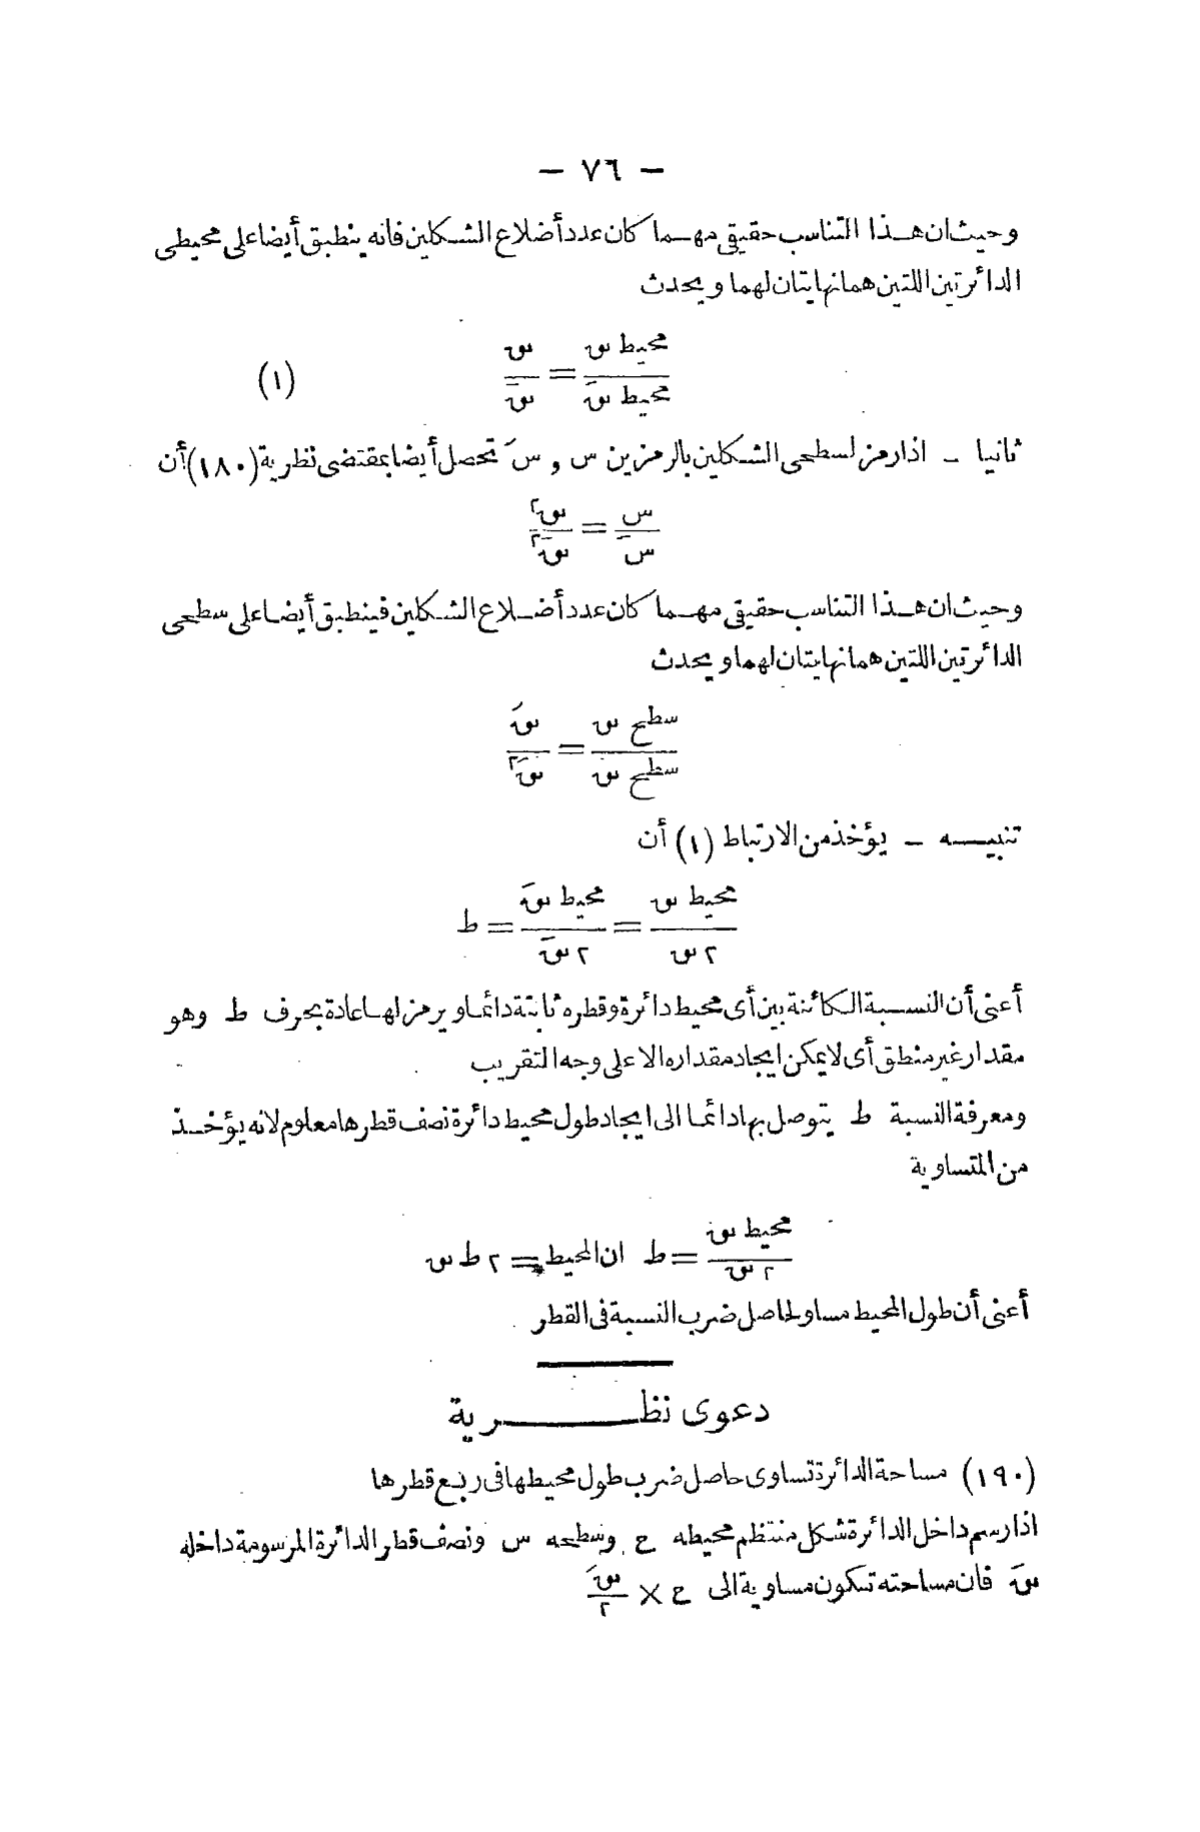 — ٧٦ —
وحيث ان هذا التناسب حقيقى مهما كان عدد أضلاع الشكلين فانه ينطبق أيضا على محيطى
الدائرتين اللتين هما نهايتان لهما ويحدث
محيط نق / محيط نقَ = نق / نقَ (١)
ثانيا — اذا رمز لسطحى الشكلين بالرمزين س و سَ تحصل أيضا بمقتضى نظرية (١٨٠) أن
س / سَ = نق٢ / نقَ٢
وحيث ان هذا التناسب حقيقى مهما كان عدد أضلاع الشكلين فينطبق أيضا على سطحى
الدائرتين اللتين هما نهايتان لهما ويحدث
سطح نق / سطح نق = نقَ / نقَ٢
تنبيه — يؤخذ من الارتباط (١) أن
محيط نق / ٢ نق = محيط نقَ / ٢ نقَ = ط
أعنى أن النسبة الكائنة بين أى محيط دائرة وقطره ثابتة دائما ويرمز لها عادة بحرف ط وهو
مقدار غير منطق أى لا يمكن ايجاد مقداره الا على وجه التقريب
ومعرفة النسبة ط يتوصل بها دائما الى ايجاد طول محيط دائرة نصف قطرها معلوم لانه يؤخذ
من المتساوية
محيط نق / ٢ نق = ط ان المحيط = ٢ ط نق
أعنى أن طول المحيط مساو لحاصل ضرب النسبة فى القطر
دعوى نظرية
(١٩٠) مساحة الدائرة تساوى حاصل ضرب طول محيطها فى ربع قطرها
اذا رسم داخل الدائرة شكل منتظم محيطه ع وسطحه س ونصف قطر الدائرة المرسومة داخله
نقَ فان مساحته تكون مساوية الى ع × نقَ / ٢